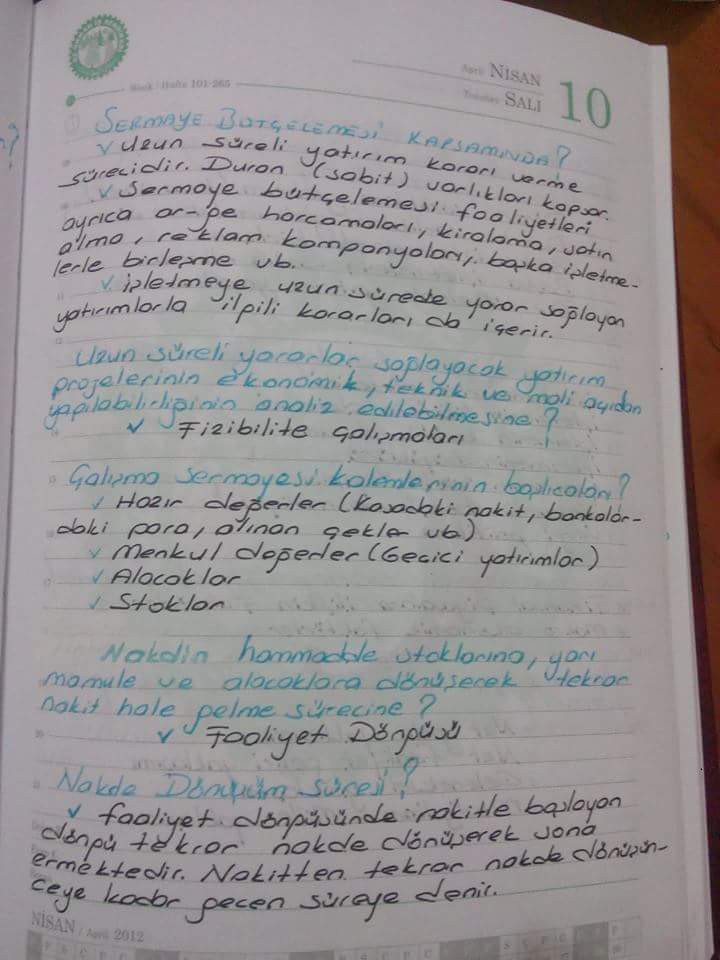 April NİSAN
Tuesday SALI 10
Week / Hafta 101-265
SERMAYE BÜTÇELEMESİ KAPSAMINDA?
✓ Uzun süreli yatırım kararı verme
sürecidir. Duran (sabit) varlıkları kapsar.
✓ Sermaye bütçelemesi faaliyetleri
ayrıca ar-ge harcamaları, kiralama, satın
alma, reklam kampanyaları, başka işletme-
lerle birleşme vb.
✓ işletmeye uzun sürede yarar sağlayan
yatırımlarla ilgili kararları da içerir.
Uzun süreli yararlar sağlayacak yatırım
projelerinin ekonomik, teknik ve mali açıdan
yapılabilirliğinin analiz edilebilmesine?
✓ Fizibilite Çalışmaları
Çalışma sermayesi kalemlerinin başlıcaları?
✓ Hazır değerler (Kasadaki nakit, bankalar-
daki para, alınan çekler vb.)
✓ Menkul değerler (Geçici yatırımlar)
✓ Alacaklar
✓ Stoklar
Nakdin hammadde stoklarına, yarı
mamule ve alacaklara dönüşerek tekrar
nakit hale gelme sürecine?
✓ Faaliyet Döngüsü
Nakde Dönüşüm süresi?
✓ faaliyet döngüsünde nakitle başlayan
döngü tekrar nakde dönüşerek sona
ermektedir. Nakitten tekrar nakde dönüşün-
ceye kadar geçen süreye denir.
NİSAN / April 2012